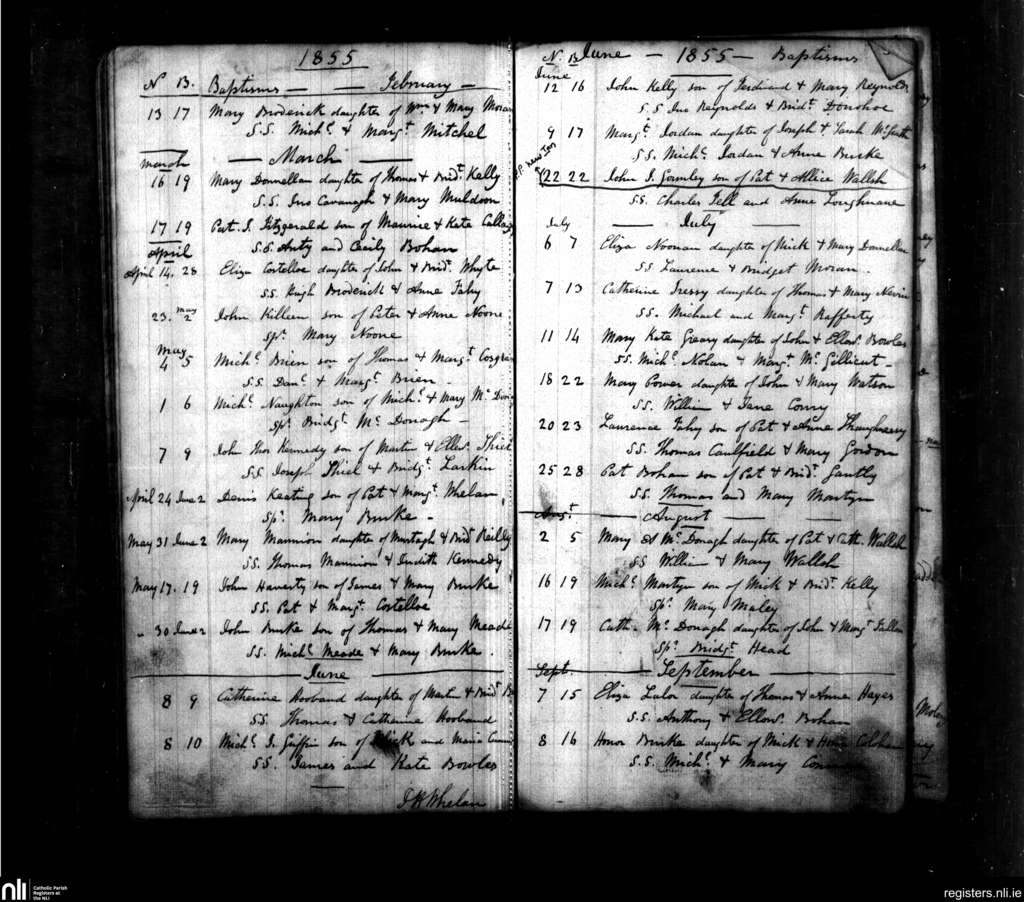 1855
N B. Baptisms — — February —
13 17 Mary Broderick daughter of Wm & Mary Moran
S.S. Michl & Margt Mitchel
March — March —
16 19 Mary Donnellan daughter of Thomas & Bridt Kelly
S.S. Jno Cavanagh & Mary Muldoon
17 19 Pat. J. Fitzgerald son of Maurice & Kate
S.S. Anty and Cecily Bohan
April
April 14. 28 Eliza Costelloe daughter of John & Bridt Whyte
S.S. Hugh Broderick & Anne Fahy
23. May 2 John Killeen son of Peter & Anne Noone
Spr Mary Noone
May
4 5 Michl Brien son of Thomas & Margt
S.S. Danl & Margt Brien.
1 6 Michl Naughton son of Michl & Mary Mc
Spr Bridgt Mc Donagh —
7 9 John Thos Kennedy son of Martin & Ellen Thiel
S.S. Joseph Thiel & Bridgt Larkin
April 24 June 2 Denis Keating son of Pat & Margt Whelan
Spr Mary Burke —
May 31 June 2 Mary Mannion daughter of Murtagh & Bridt Reilly
S.S. Thomas Mannion & Judith Kennedy
May 17. 19 John Haverty son of James & Mary Burke
S.S. Pat & Margt Costelloe
" 30 June 2 John Burke son of Thomas & Mary Meade
S.S. Michl Meade & Mary Burke.
June
8 9 Catherine Hosband daughter of Martin & Bridt
S.S. Thomas & Catherine Hosband
8 10 Michl J. Griffin son of Mick and Maria
S.S. James and Kate Bowles
J K Whelan
N. B. June — 1855 — Baptisms
June
12 16 John Kelly son of Ferdinand & Mary Reynolds
S.S. Jno Reynolds & Bridt Donohoe
9 17 Margt Jordan daughter of Joseph & Sarah
S.S. Michl Jordan & Anne Burke
22 22 John J. Gormley son of Pat & Allice Walsh
S.S. Charles Fell and Anne Loughnane
July — July —
6 7 Eliza Noonan daughter of Mick & Mary Donnellan
S.S. Laurence & Bridget Moran.
7 13 Catherine Tressy daughter of Thomas & Mary Nevin
S.S. Michael and Margt Rafferty
11 14 Mary Kate Greary daughter of John & Ellen Bowles
S.S. Michl Nolan & Margt Mc Gillicut —
18 22 Mary Power daughter of John & Mary Watson
S.S. William & Jane Conry
20 23 Laurence Fahy son of Pat & Anne Shaughnessy
S.S. Thomas Caulfield & Mary Gordon
25 28 Pat Bohan son of Pat & Bridt Gantly
S.S. Thomas and Mary Martyn
Augst — August —
2 5 Mary A Mc Donagh daughter of Pat & Cath Wallsh
S.S. William & Mary Wallsh
16 19 Michl Martyn son of Mick & Bridt Kelly
Spr Mary Maley
17 19 Cath. Mc Donagh daughter of John & Margt Fallon
Spr Bridgt Head
Sept. — September —
7 15 Eliza Lalor daughter of Thomas & Anne Hayes
S.S. Anthony & Ellen Bohan
8 16 Honor Burke daughter of Mick &
S.S. Michl & Mary
nli Catholic Parish Registers at the NLI
registers.nli.ie